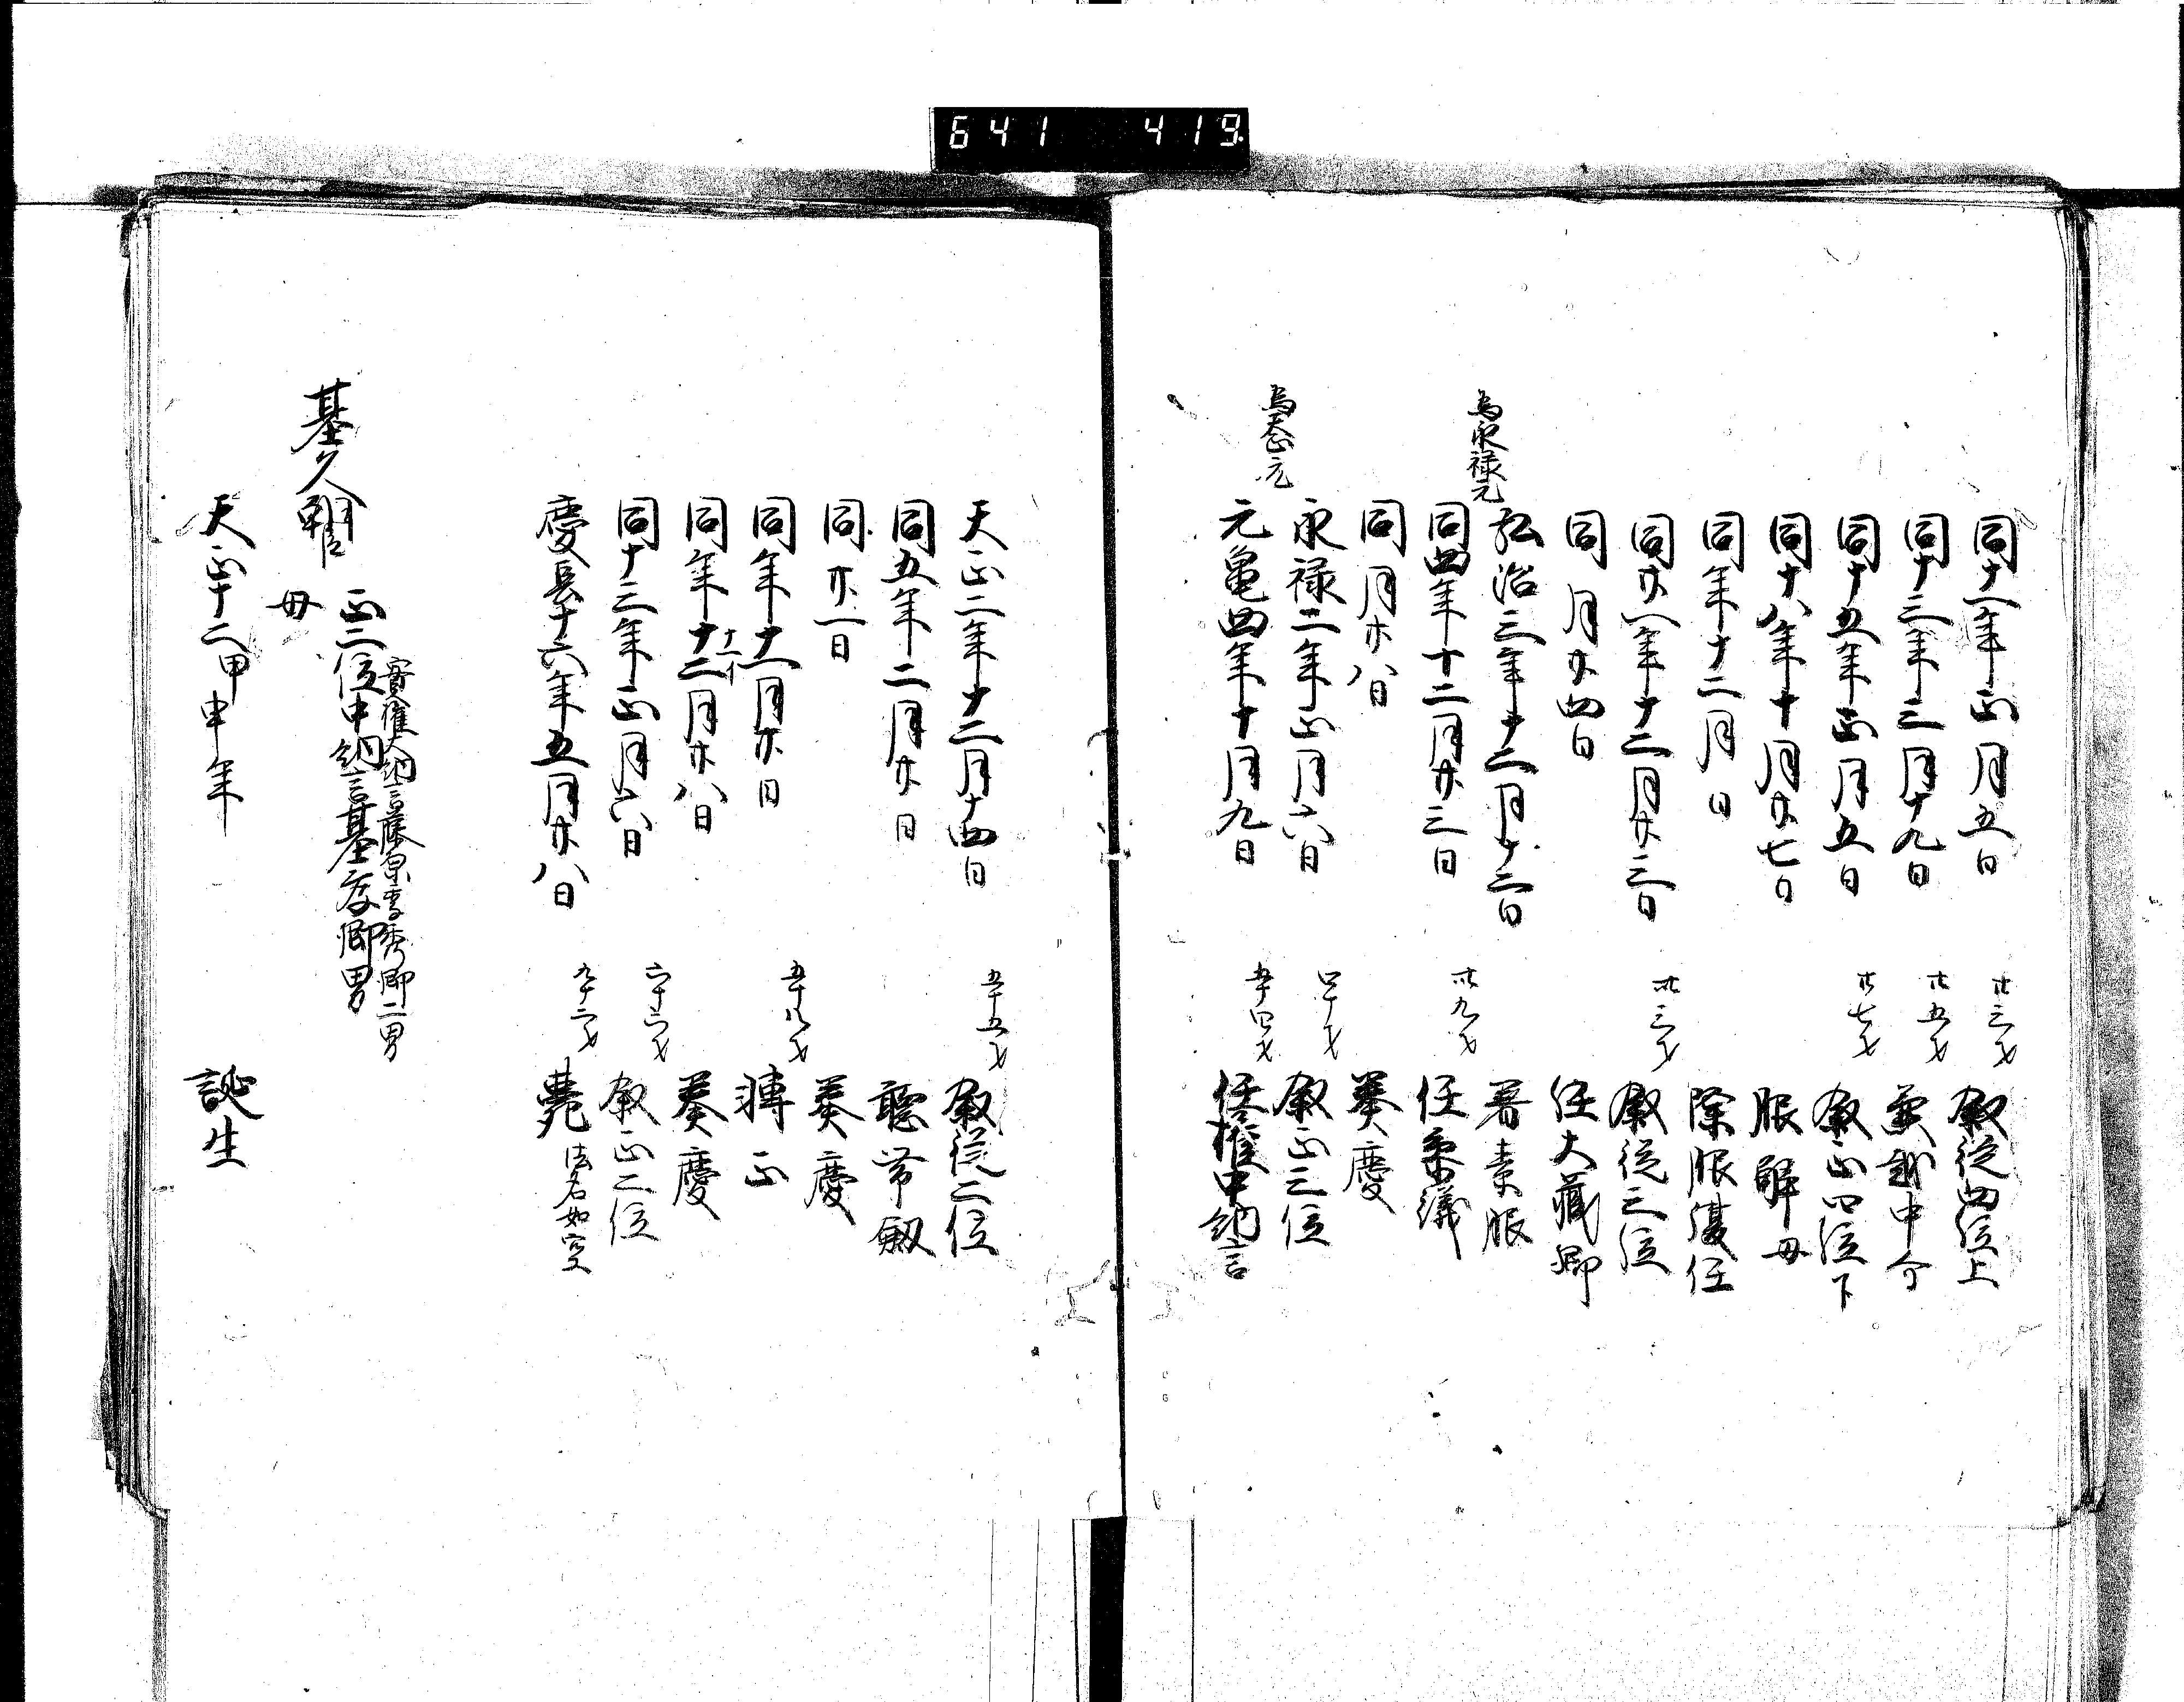 641 419
同十一年正月五日 廿三才 叙従四位上
同十三年三月十九日 廿五才 兼越中介
同十五年正月五日 廿七才 叙正四位下
同十八年十月廿七日 服解母
同年十二月 日 除服復任
同廿一年十二月廿三日 卅三才 叙従三位
同 月廿四日 任大蔵卿
弘治三年十二月十二日 著素服
為永禄元
同四年十二月廿三日 卅九才 任参議
同月廿八日 奏慶
永禄二年正月六日 四十才 叙正三位
為天正元
元亀四年十月九日 五十四才 任権中納言
天正二年十二月十四日 五十五才 叙従二位
同五年二月廿日 聴帯剱
同廿一日 奏慶
同年十一月廿日 五十八才 転正
同年十二月廿八日 奏慶
同十三年正月六日 六十六才 叙正二位
慶長十六年五月廿八日 九十二才 薨 法名如空
基久朝臣
実権大納言藤原季秀卿二男
正二位中納言基孝卿男
母
天正十二甲申年 誕生